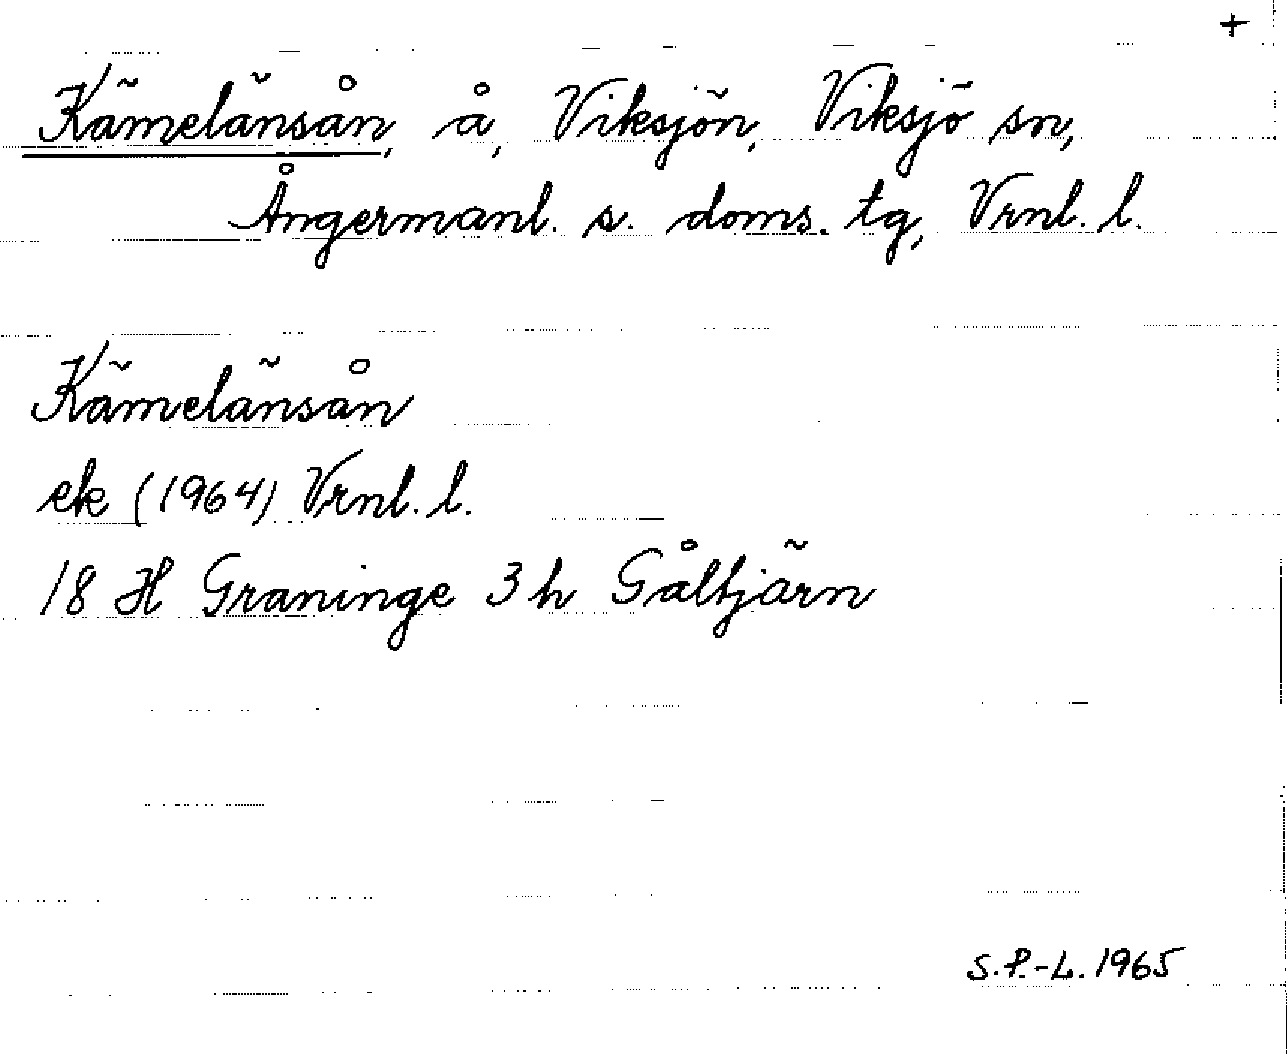 +
Kämelänsån, å, Viksjön, Viksjö sn,
Ångermanl. s. doms. tg, Vrnl. l.
Kämelänsån
ek (1964) Vrnl. l.
18 H Graninge 3 h Gåltjärn
S.P.-L. 1965